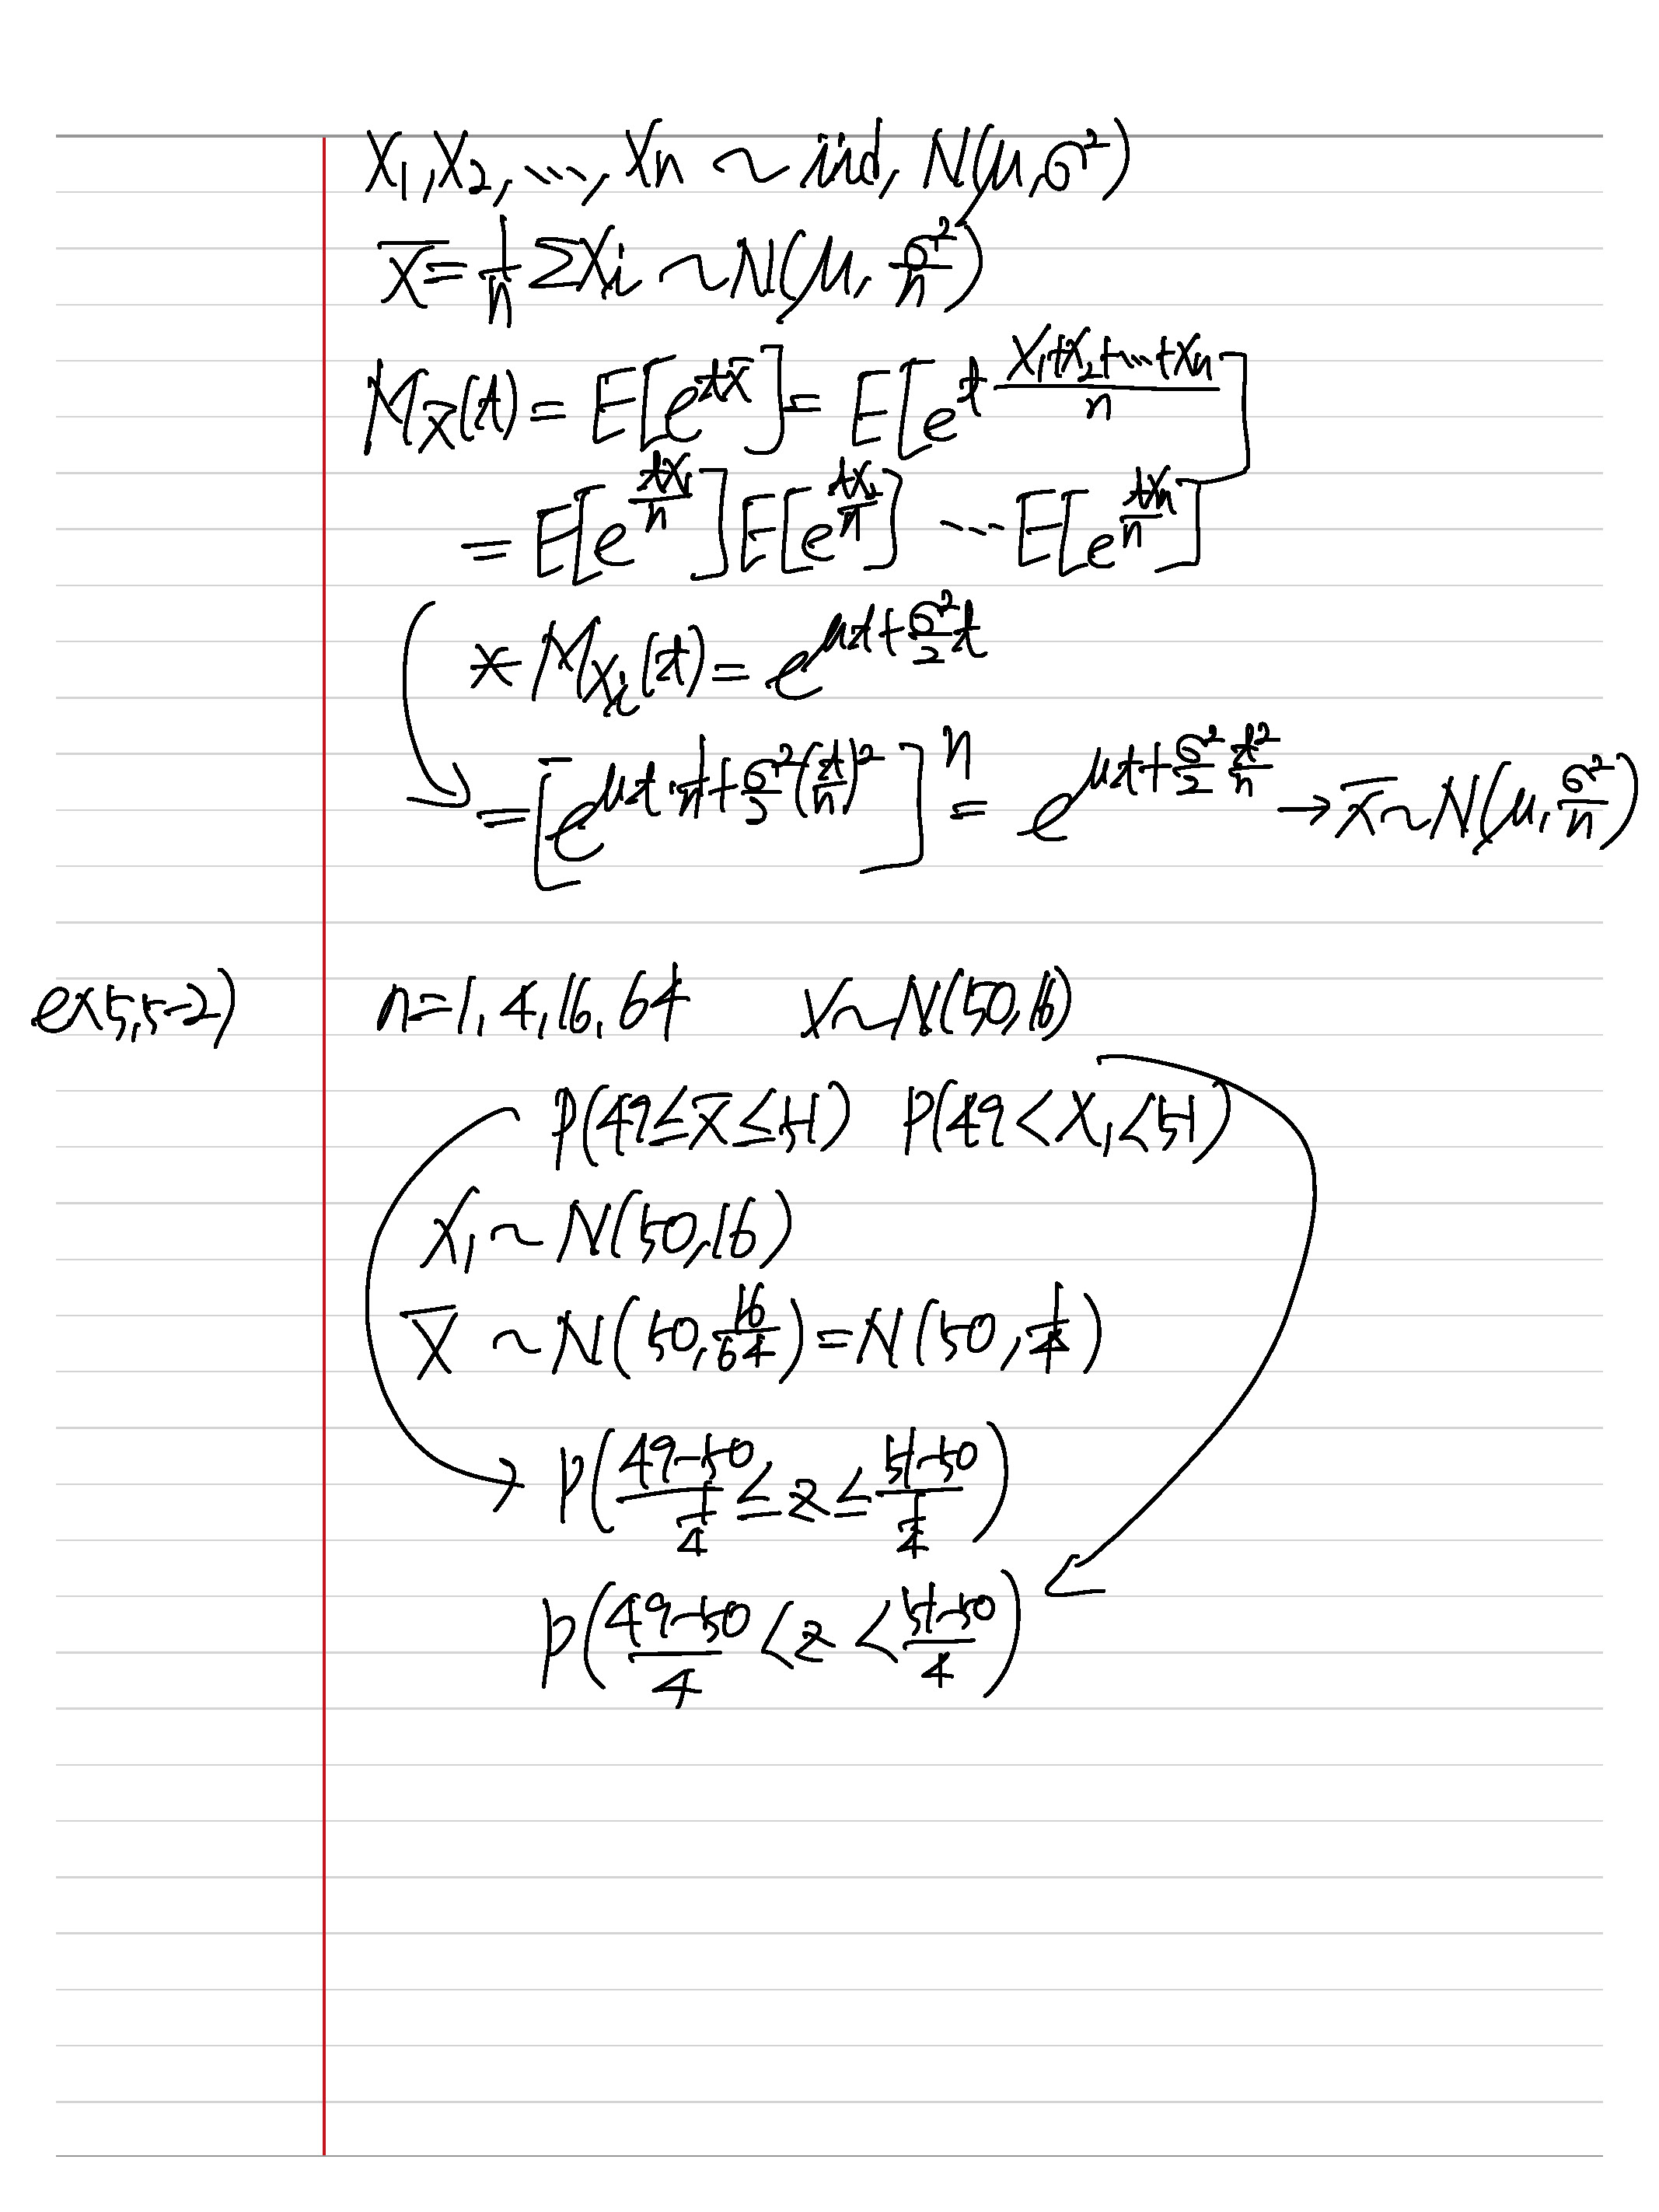 X₁, X₂, ..., Xn ~ iid, N(μ, σ²)
X̄ = 1/n ΣXi ~ N(μ, σ²/n)
M_X̄(t) = E[e^(tX̄)] = E[e^(t (X₁+X₂+...+Xn)/n)]
= E[e^(tX₁/n)] E[e^(tX₂/n)] ... E[e^(tXn/n)]
* M_Xi(t) = e^(μt + σ²/2 t)
= [e^(μt·1/n + σ²/2 (t/n)²)]^n = e^(μt + σ²/2 t²/n) → X̄ ~ N(μ, σ²/n)
ex5,5-2) n=1, 4, 16, 64 X ~ N(50, 16)
P(49 ≤ X̄ ≤ 51) P(49 < X₁ < 51)
X₁ ~ N(50, 16)
X̄ ~ N(50, 16/64) = N(50, 1/4)
→ P((49-50)/(1/4) ≤ z ≤ (51-50)/(1/4))
P((49-50)/4 < z < (51-50)/4)